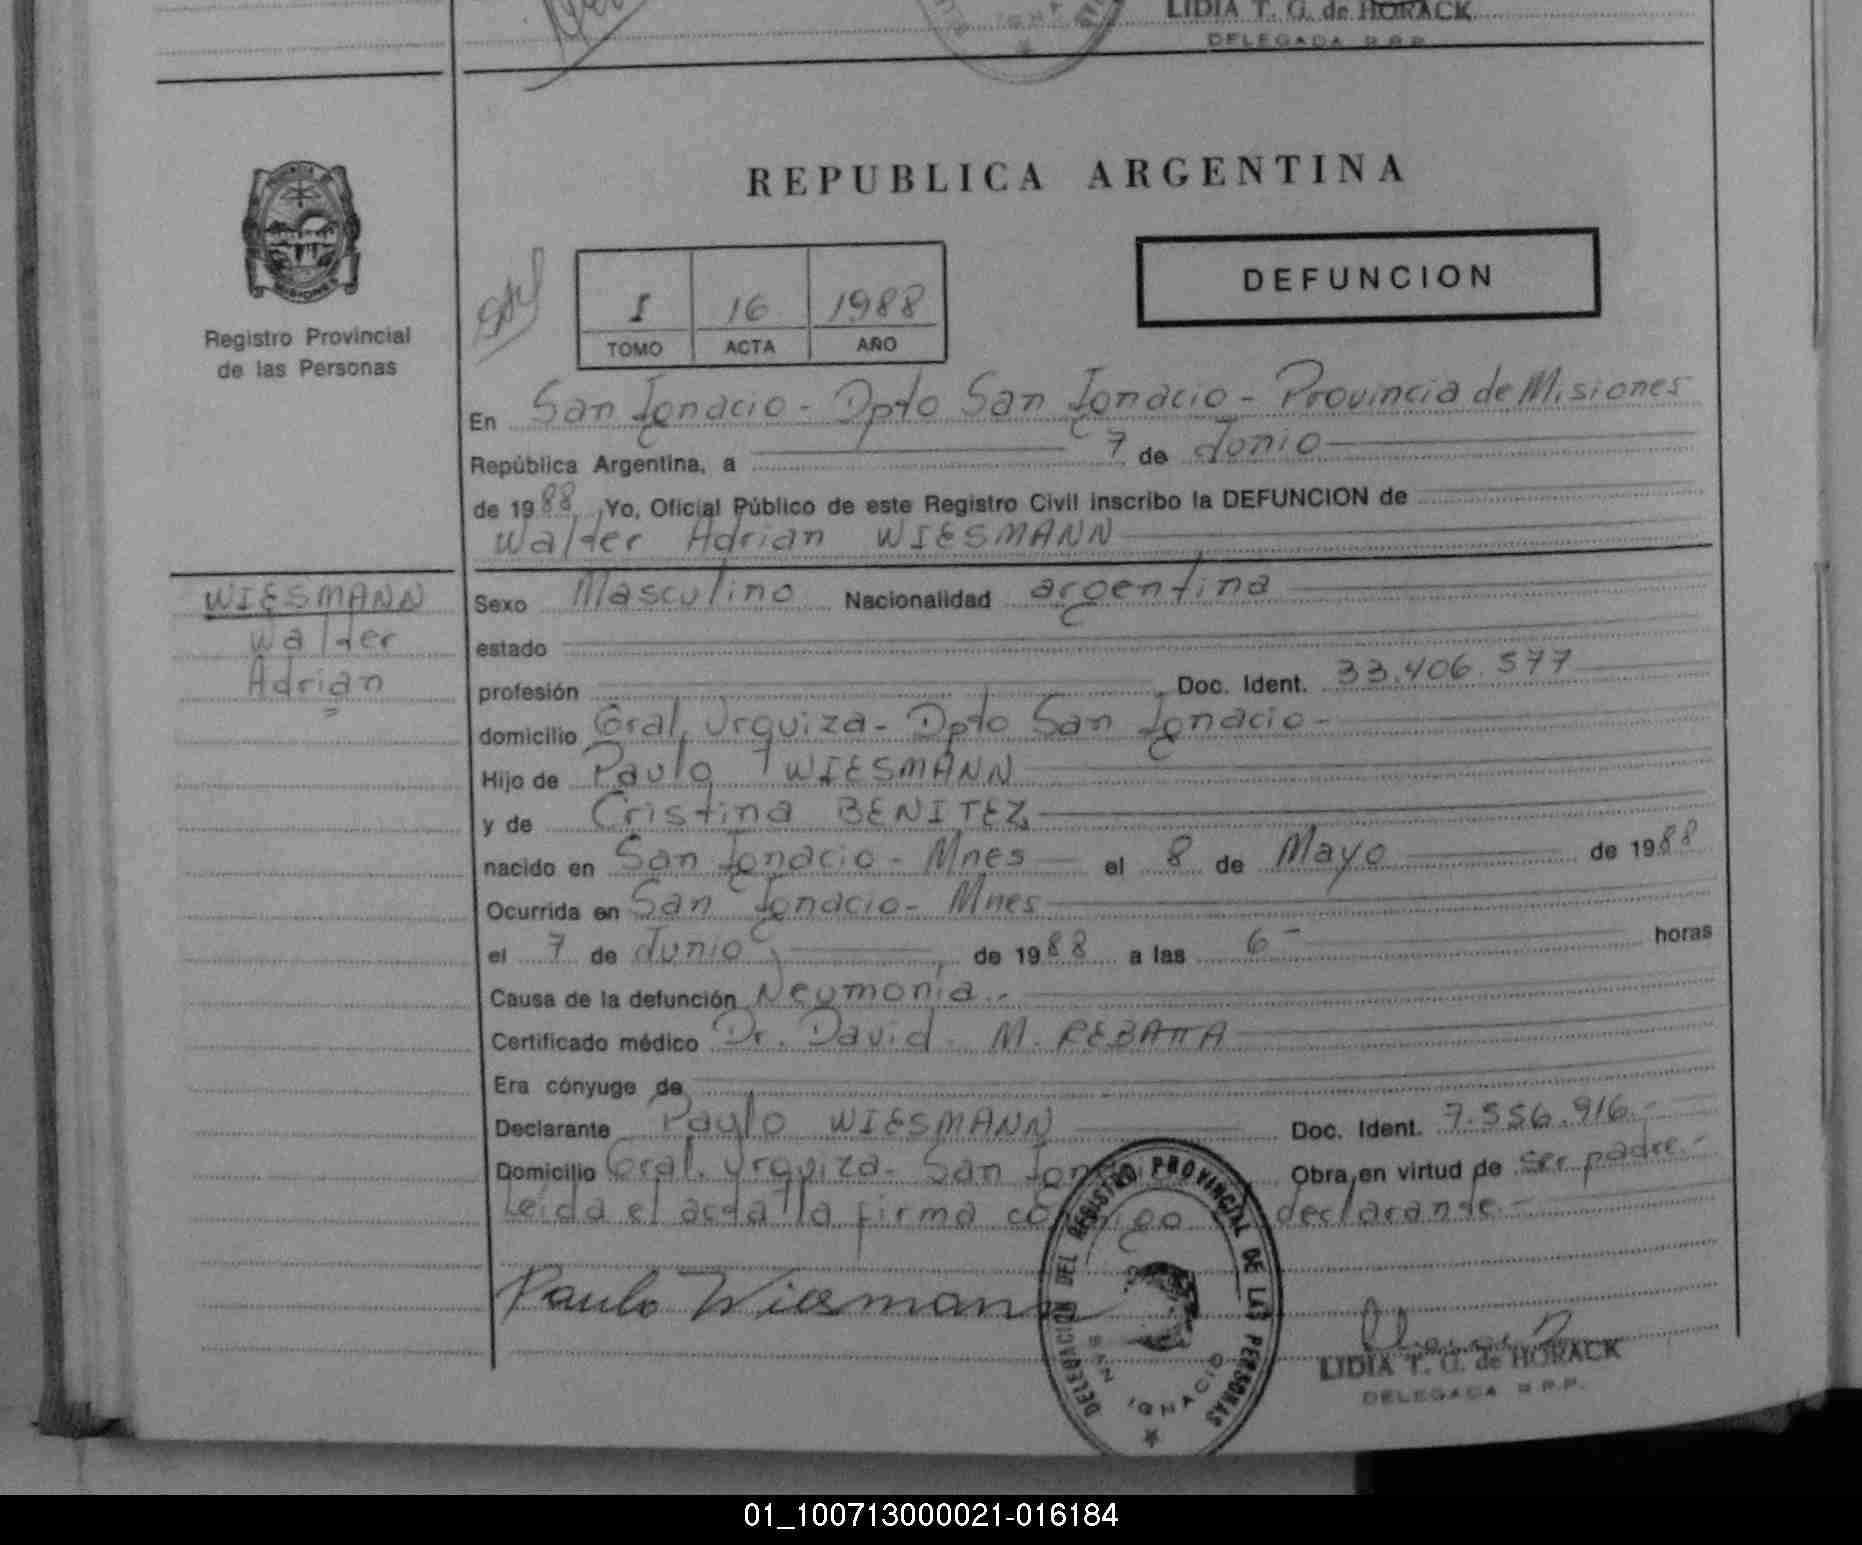 LIDIA T. G. de HORACK
DELEGADA R.P.P.
REPUBLICA ARGENTINA
MISIONES
Registro Provincial
de las Personas
I 16 1988
TOMO ACTA AÑO
DEFUNCION
En San Ignacio - Dpto San Ignacio - Provincia de Misiones
República Argentina, a 7 de Junio
de 1988 Yo, Oficial Público de este Registro Civil inscribo la DEFUNCION de
Walter Adrian WIESMANN
WIESMANN
Walter
Adrian
Sexo Masculino Nacionalidad argentina
estado
profesión Doc. Ident. 33.406.577
domicilio Gral. Urquiza - Dpto San Ignacio -
Hijo de Paulo WIESMANN
y de Cristina BENITEZ
nacido en San Ignacio - Mnes el 8 de Mayo de 1988
Ocurrida en San Ignacio - Mnes
el 7 de Junio de 1988 a las 6 - horas
Causa de la defunción Neumonia. -
Certificado médico Dr. David M. REBATTA
Era cónyuge de
Declarante Paulo WIESMANN Doc. Ident. 7.556.916 -
Domicilio Gral. Urquiza - San Obra en virtud de ser padre. -
Leida el acta la firma declarante. -
Paulo Wiesmann
DELEGACION DEL REGISTRO PROVINCIAL DE LAS PERSONAS
SAN IGNACIO
LIDIA T. G. de HORACK
DELEGADA R.P.P.
01_100713000021-016184